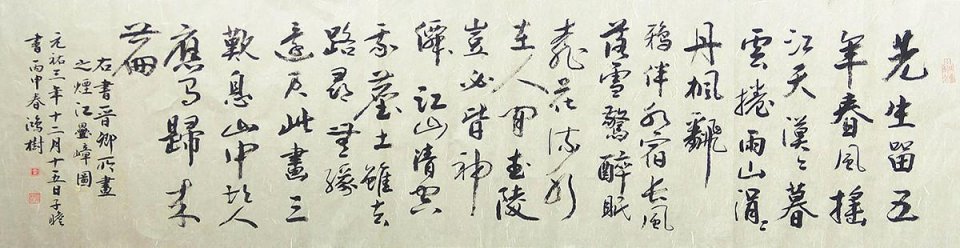 先生留五
年春風搖
江天漠〻暮
雲捲雨山涓〻
丹楓飜
鴉伴水宿長風
落雪驚醉眠
桃花流水
在人間武陵
豈必皆神
僊江山清空
我塵土雖去
路尋無緣
還君此畫三
歎息山中故人
應歸來
篇
右書晉卿所畫
之煙江疊嶂圖
元祐三年十二月十五日子瞻
書丙申春鴻樹